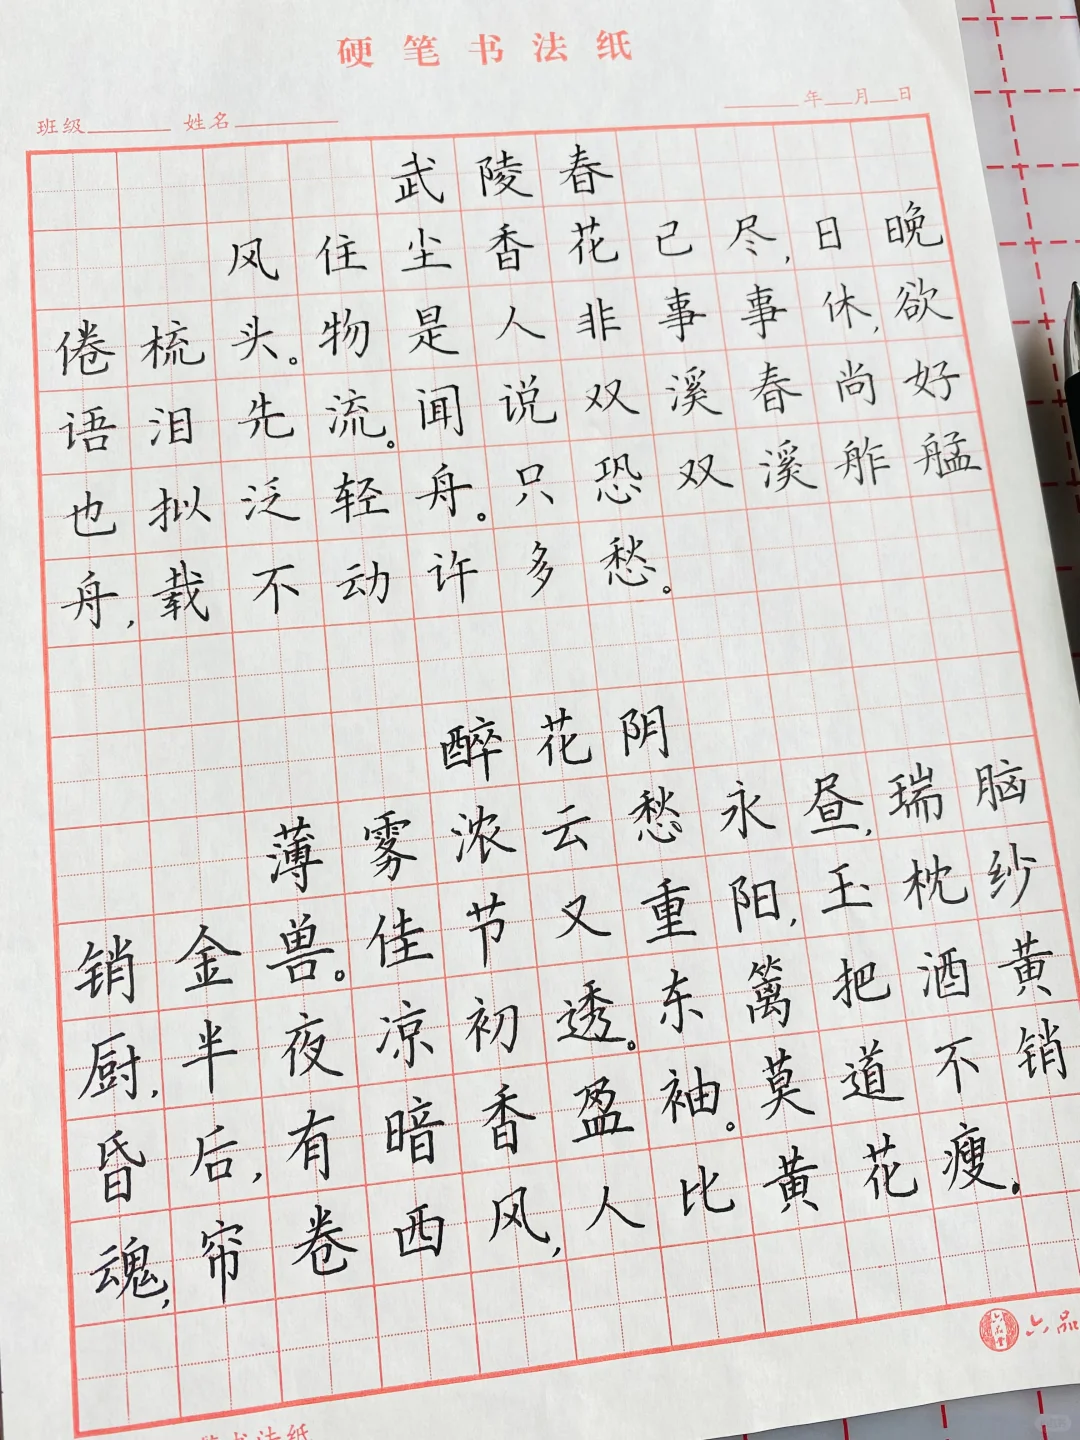 硬笔书法纸
班级 姓名 年 月 日
武陵春
风住尘香花已尽,日晚
倦梳头。物是人非事事休,欲
语泪先流。闻说双溪春尚好
也拟泛轻舟。只恐双溪舴艋
舟,载不动许多愁。
醉花阴
薄雾浓云愁永昼,瑞脑
销金兽。佳节又重阳,玉枕纱
厨,半夜凉初透。东篱把酒黄
昏后,有暗香盈袖。莫道不销
魂,帘卷西风,人比黄花瘦。
六品
书法纸